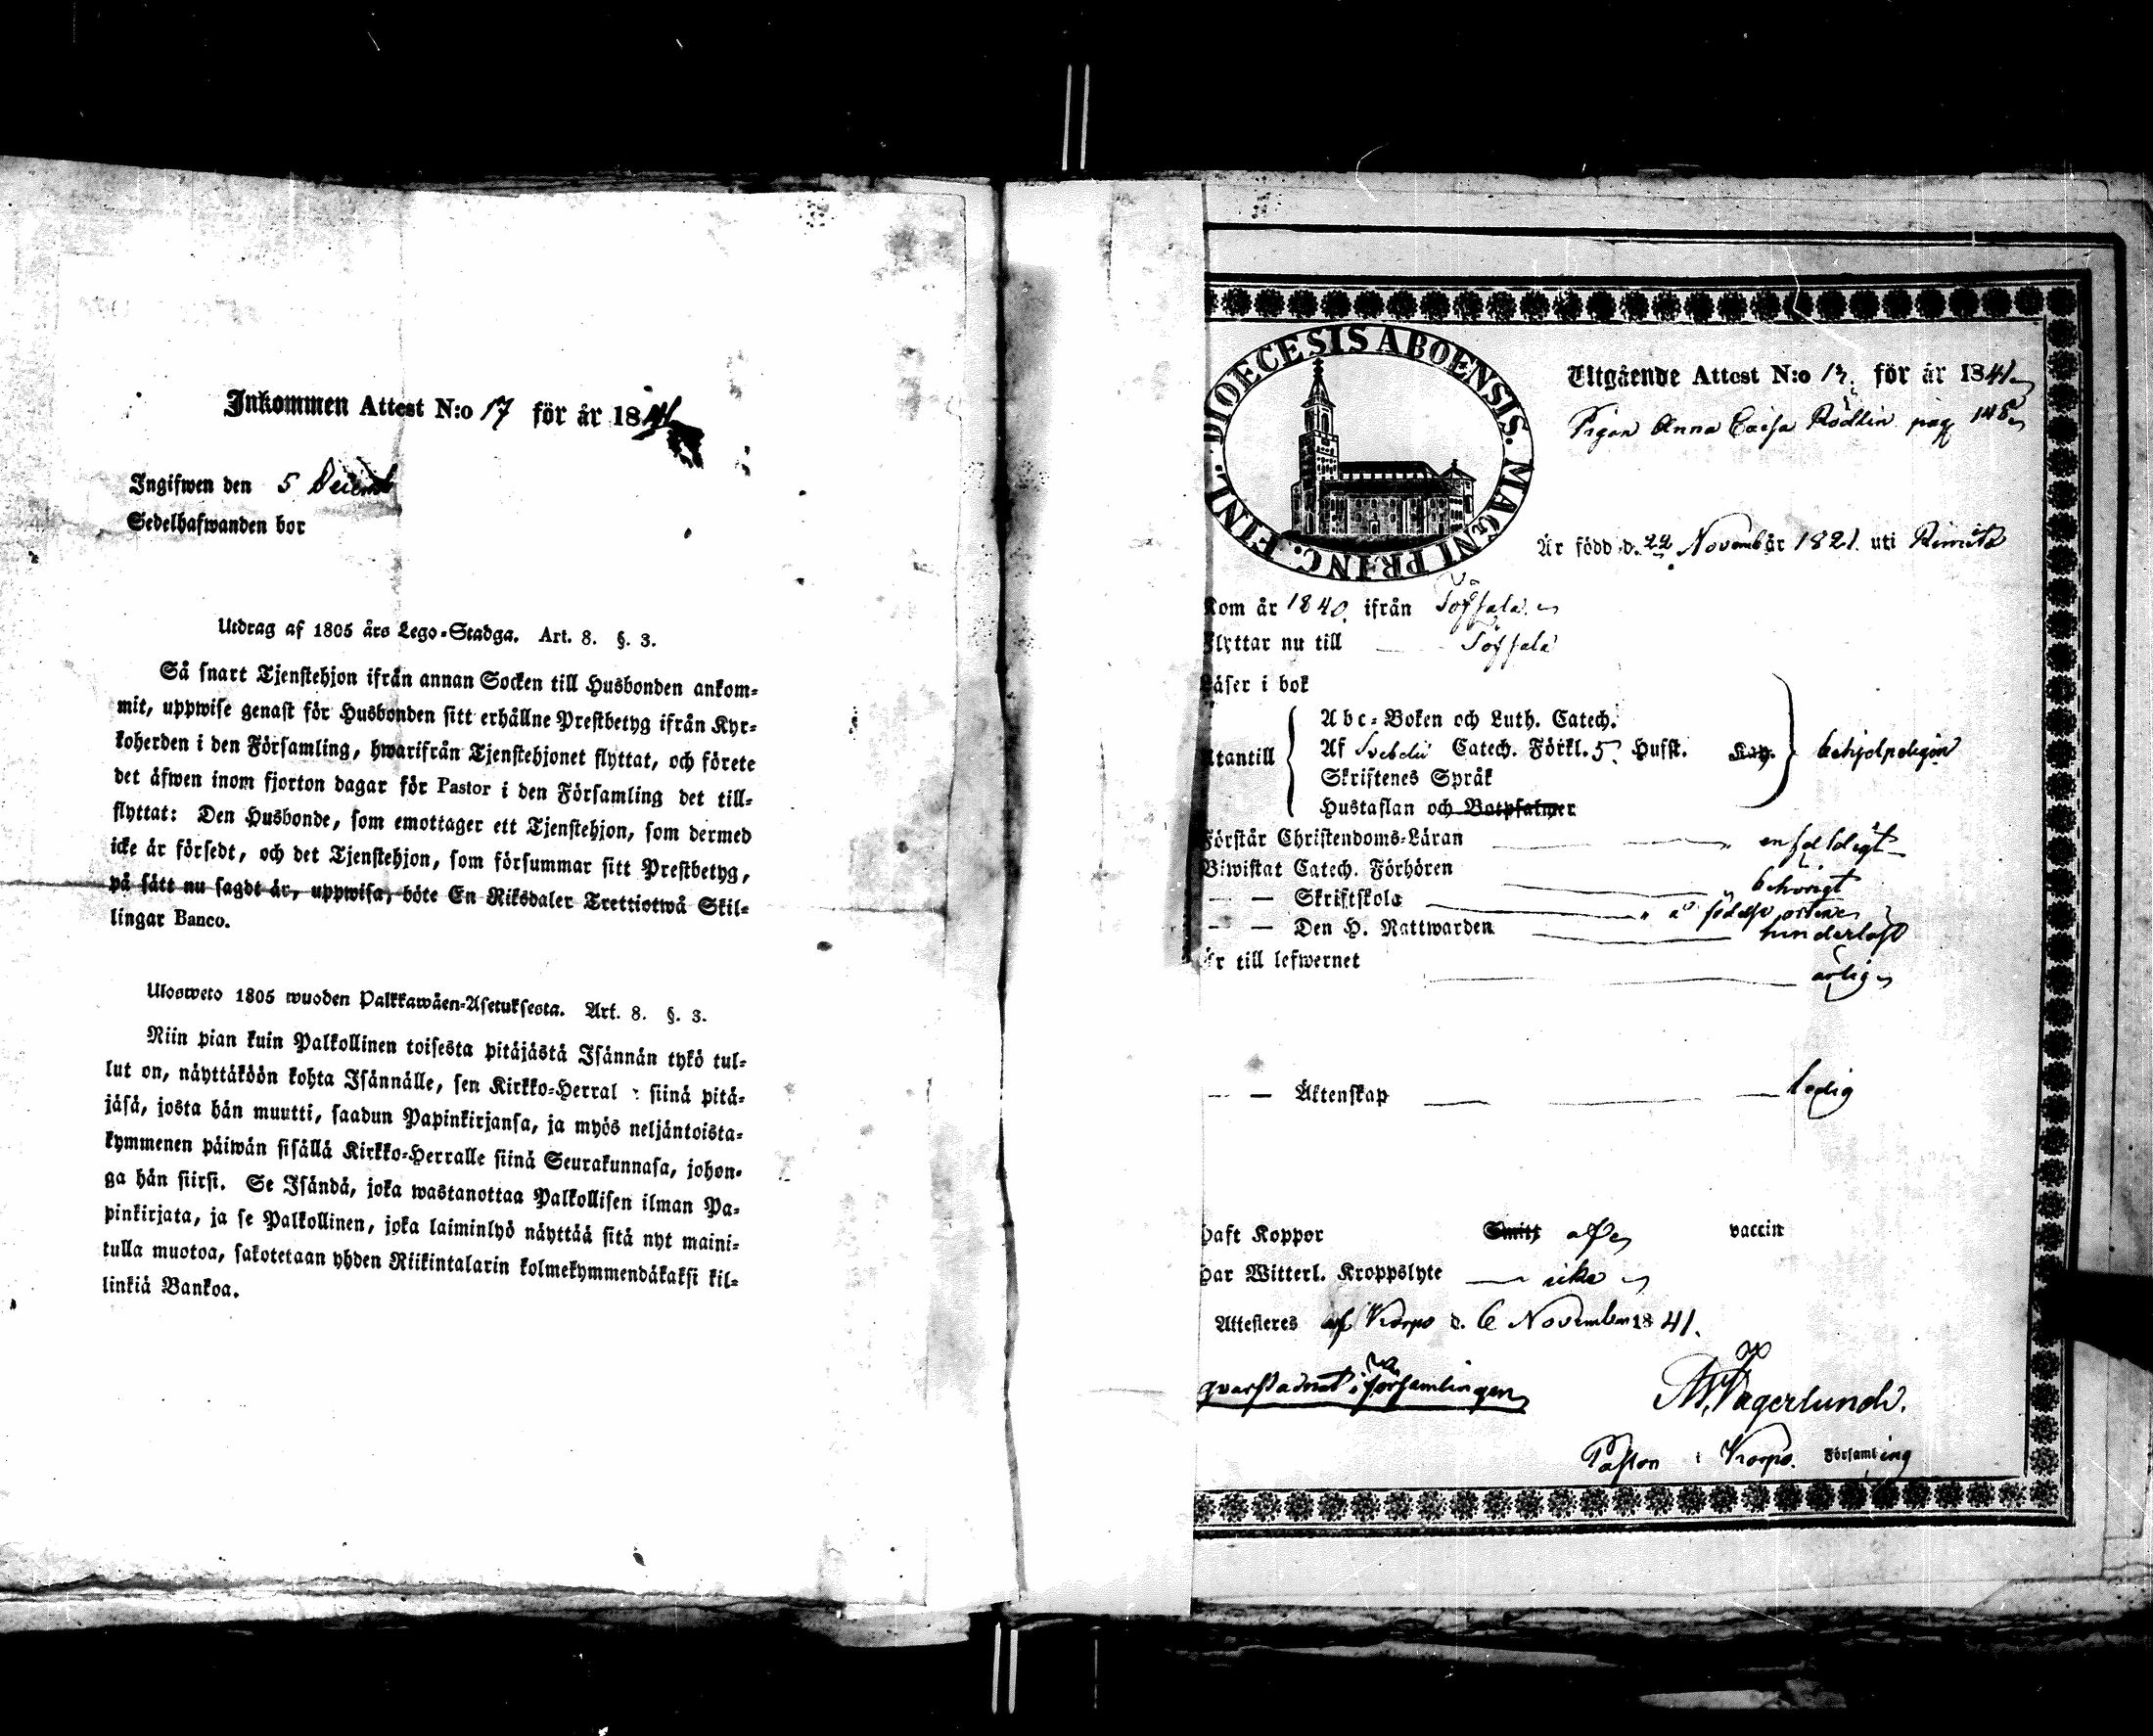 Inkommen Attest N:o 17 för år 1841
Ingifwen den 5 Decemb
Sedelhafwanden bor
Utdrag af 1805 års Lego-Stadga. Art. 8. §. 3.
Så snart Tjenstehjon ifrån annan Socken till Husbonden ankom-
mit, uppwise genast för Husbonden sitt erhållne Prestbetyg ifrån Kyr-
koherden i den Församling, hwarifrån Tjenstehjonet flyttat, och förete
det äfwen inom fjorton dagar för Pastor i den Församling det till-
flyttat: Den Husbonde, som emottager ett Tjenstehjon, som dermed
icke är försedt, och det Tjenstehjon, som försummar sitt Prestbetyg,
på sätt nu sagdt är, uppwisa, böte En Riksdaler Trettiotwå Skil-
lingar Banco.
Ulosweto 1805 wuoden Palkkawäen-Asetuksesta. Art. 8. §. 3.
Niin pian kuin Palkollinen toisesta pitäjästä Isännän tykö tul-
lut on, näyttäköön kohta Isännälle, sen Kirkko-Herral : siinä pitä-
jäsä, josta hän muutti, saadun Papinkirjansa, ja myös neljäntoista-
kymmenen päiwän sisällä Kirkko-Herralle siinä Seurakunnasa, johon-
ga hän siirsi. Se Isändä, joka wastanottaa Palkollisen ilman Pa-
pinkirjata, ja se Palkollinen, joka laiminlyö näyttää sitä nyt maini-
tulla muotoa, sakotetaan yhden Riikintalarin kolmekymmendäkaksi kil-
linkiä Bankoa.
DIOECESIS ABOENSIS. MAGNI PRINC. FINL.
Utgående Attest N:o 13. för år 1841
Pigan Anna Caisa Rödlin pag 148
Är född d. 22 Novemb år 1821. uti Rimito
Kom år 1840. ifrån Töfsala
Flyttar nu till Töfsala
Läser i bok
Utantill
Abc-Boken och Luth. Catech.
Af Svebelii Catech. Förkl. 5 Husst. Kap. behjelpeligen
Skriftenes Språk
Hustaflan och Botpsalmer
Förstår Christendoms-Läran enfaldigt
Biwistat Catech. Förhören behörigt
— — Skriftskola i födelse orten
— — Den H. Nattwarden
Är till lefwernet ärlig
— — Äktenskap ledig
Haft Koppor Smitt vaccin
Har Witterl. Kroppslyte icke
Attesteres af Korpo d. 6 November 1841.
qvarstadnat i församlingen
Fagerlund.
Pastor i Korpo Församling